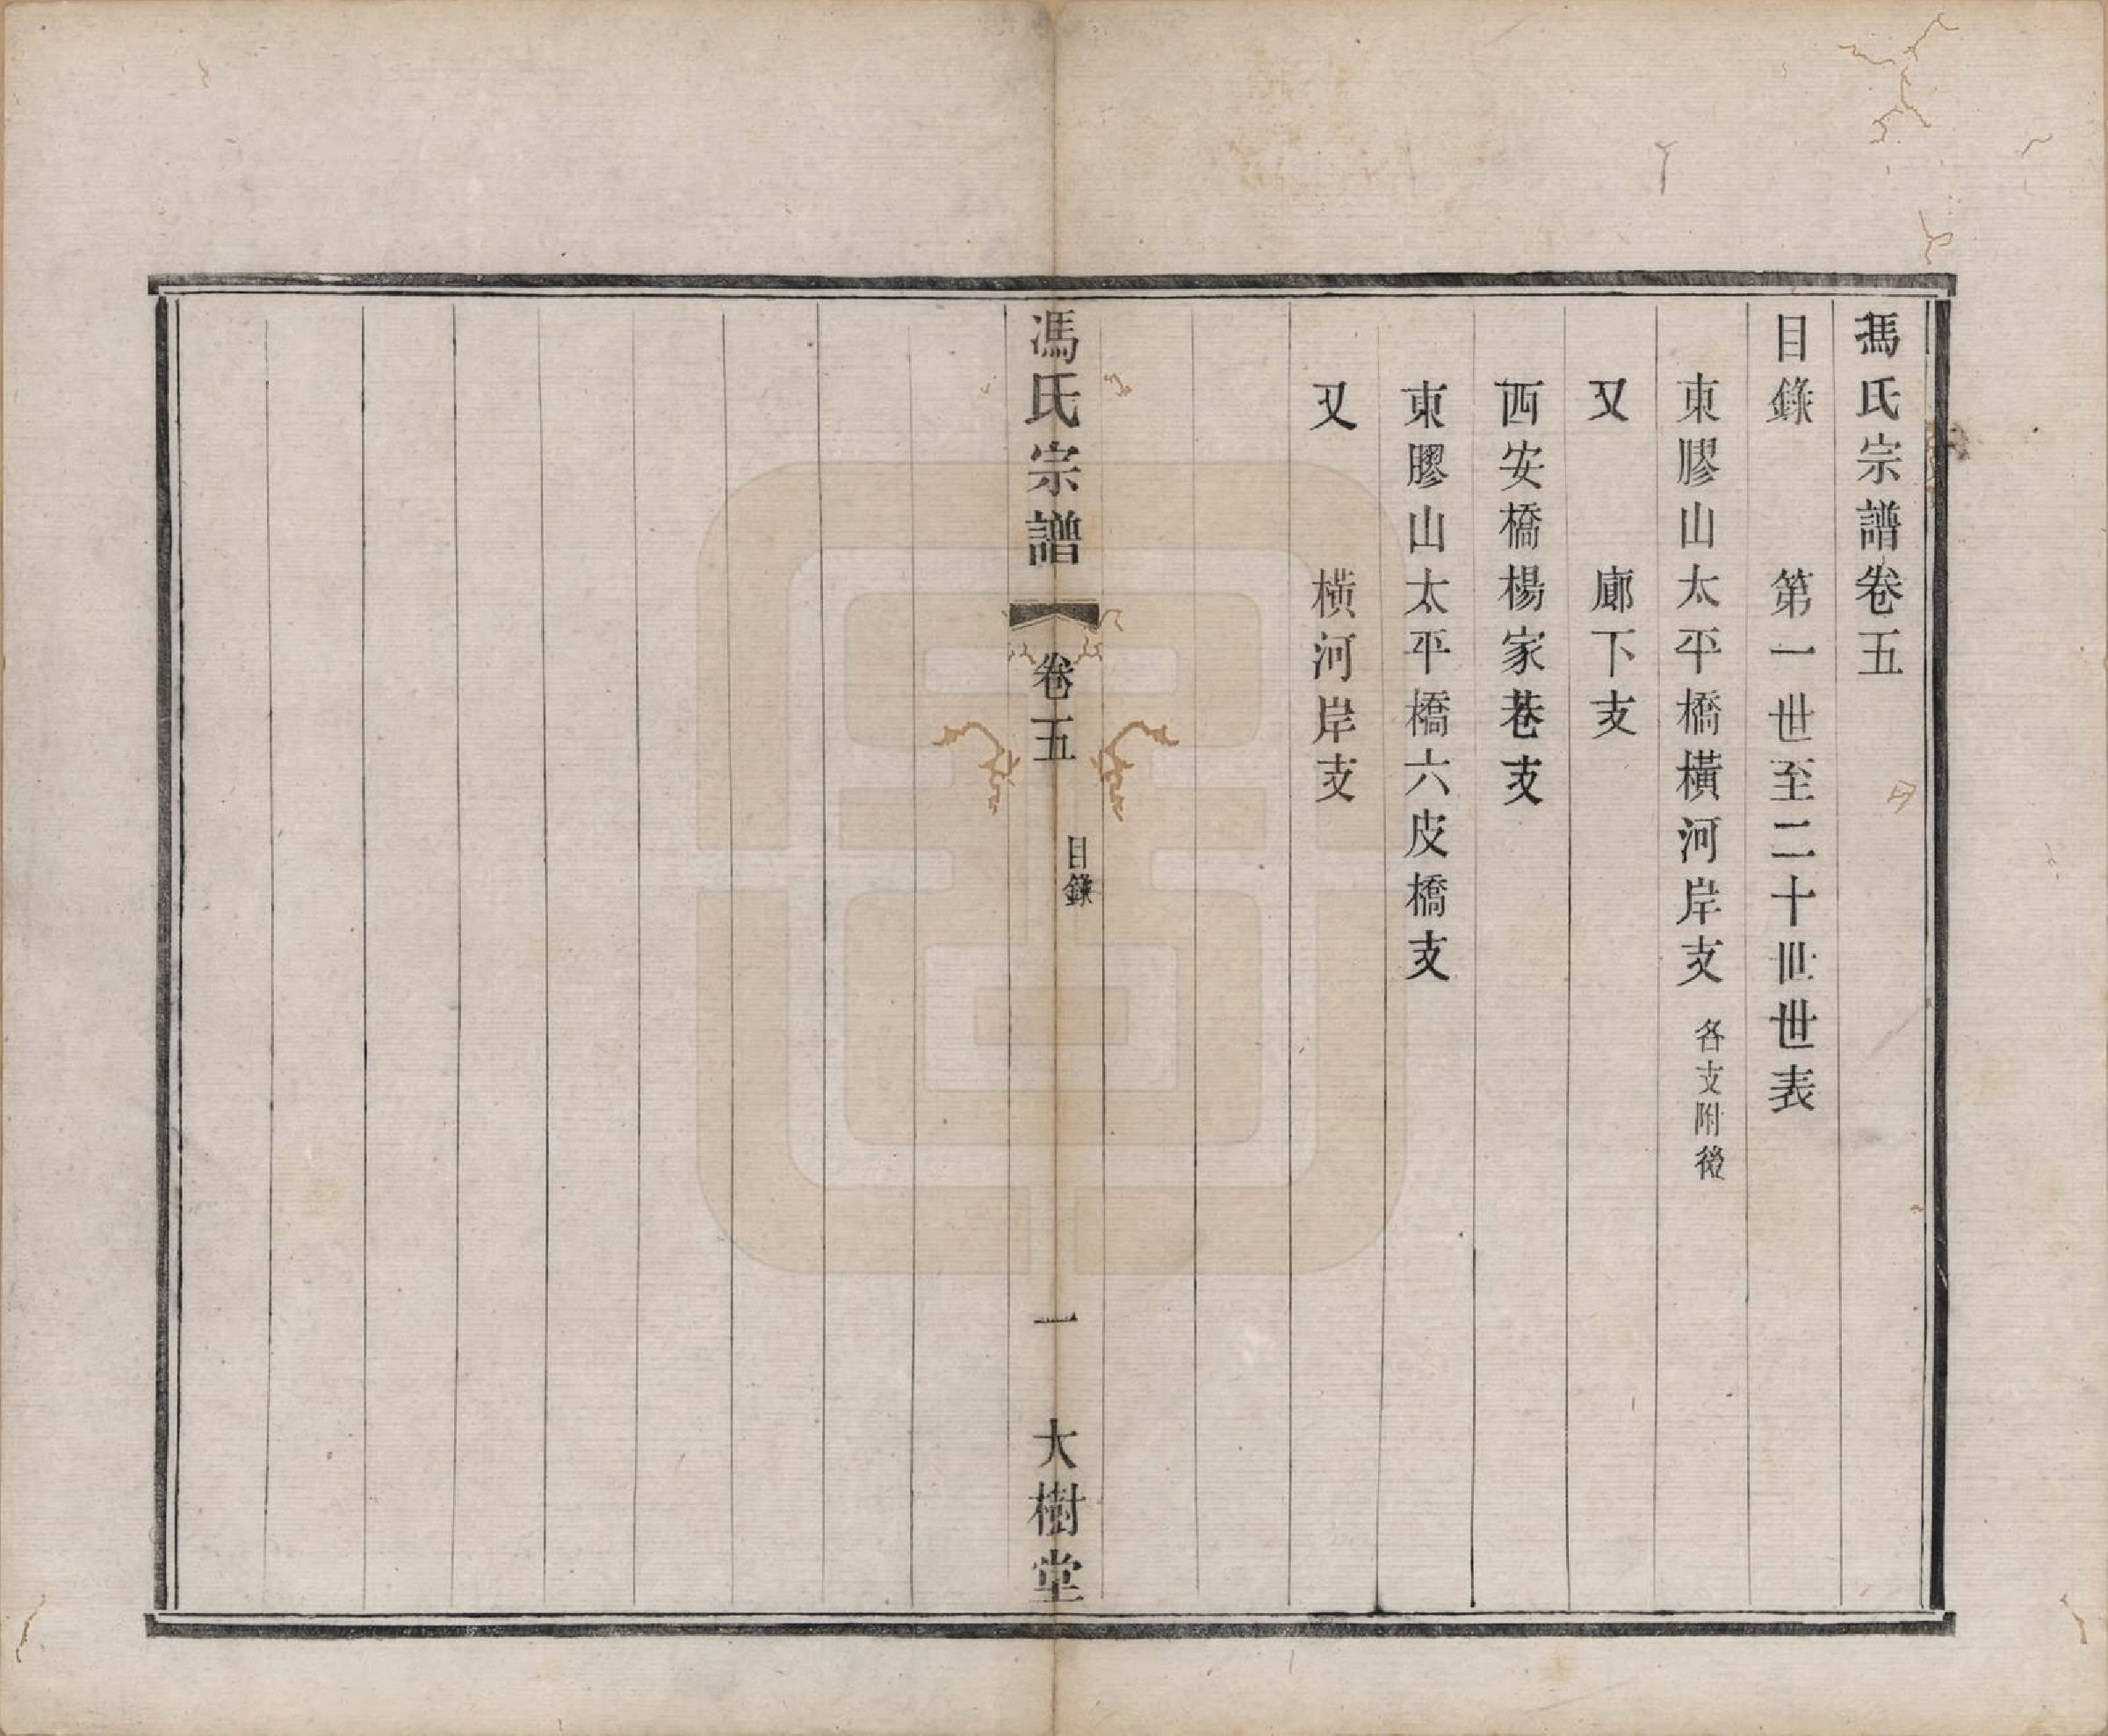 馮氏宗譜卷五
目錄 第一世至二十世世表
東膠山太平橋橫河岸支 各支附後
又 廊下支
西安橋楊家巷支
東膠山太平橋六皮橋支
又 橫河岸支
馮氏宗譜 卷五 目錄 一 大樹堂